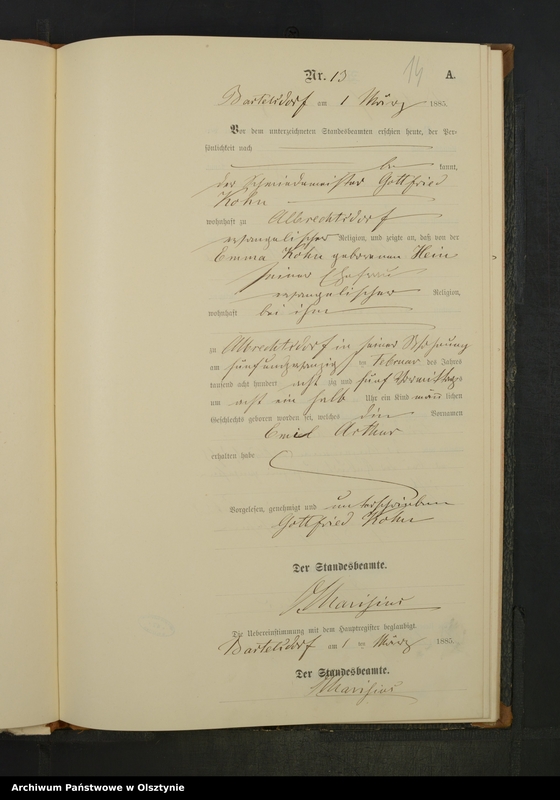 Nr. 13
14
A.
Bartelsdorf am 1 März 1885.
Vor dem unterzeichneten Standesbeamten erschien heute, der Per-
sönlichkeit nach
be kannt,
der Schmiedemeister Gottfried
Kohn
wohnhaft zu Albrechtsdorf
evangelischer Religion, und zeigte an, daß von der
Emma Kohn geborenen Hein
seiner Ehefrau
evangelischer Religion,
wohnhaft bei ihm
zu Albrechtsdorf in seiner Wohnung
am fünfundzwanzig ten Februar des Jahres
tausend acht hundert acht zig und fünf Vormittags
um acht ein halb Uhr ein Kind männ lichen
Geschlechts geboren worden sei, welches die Vornamen
Emil Arthur
erhalten habe
Vorgelesen, genehmigt und unterschrieben
Gottfried Kohn
Der Standesbeamte.
Die Uebereinstimmung mit dem Hauptregister beglaubigt.
Bartelsdorf am 1 ten März 1885.
Der Standesbeamte.
Archiwum Państwowe w Olsztynie